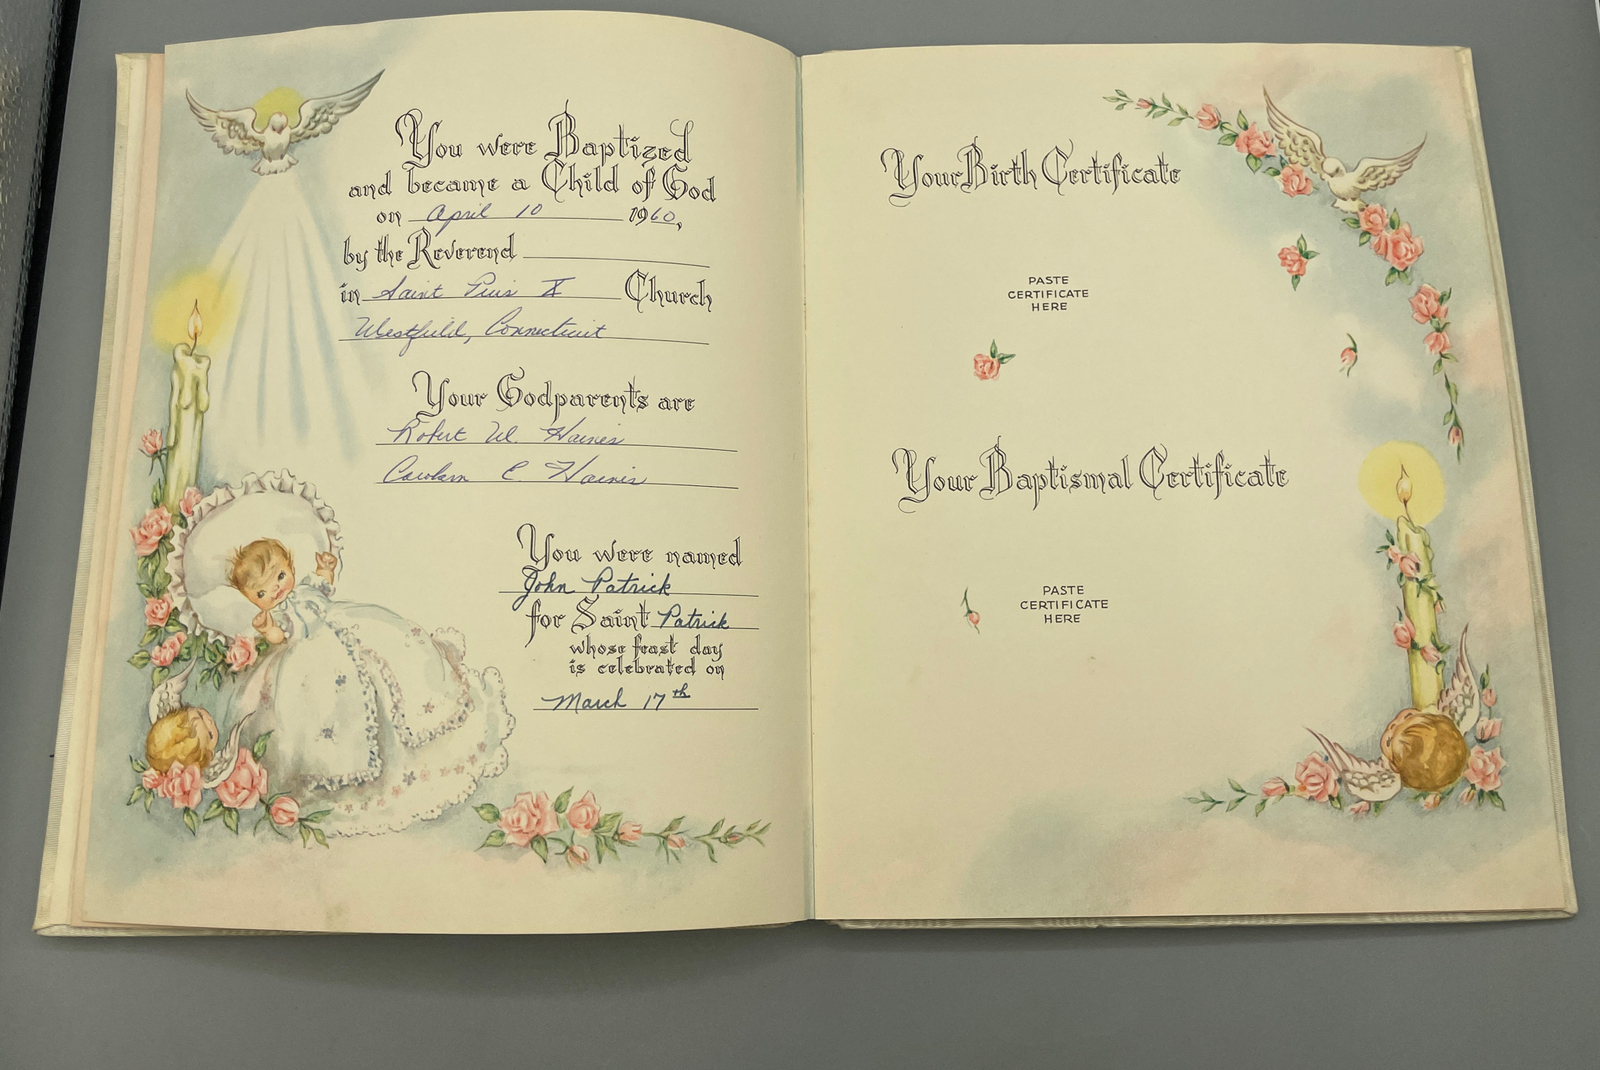 You were Baptized
and became a Child of God
on April 10 1960,
by the Reverend
in Saint Pius X Church
Westfield, Connecticut
Your Godparents are
Robert W. Haines
E. Haines
You were named
John Patrick
for Saint Patrick
whose feast day
is celebrated on
March 17th
Your Birth Certificate
PASTE
CERTIFICATE
HERE
Your Baptismal Certificate
PASTE
CERTIFICATE
HERE